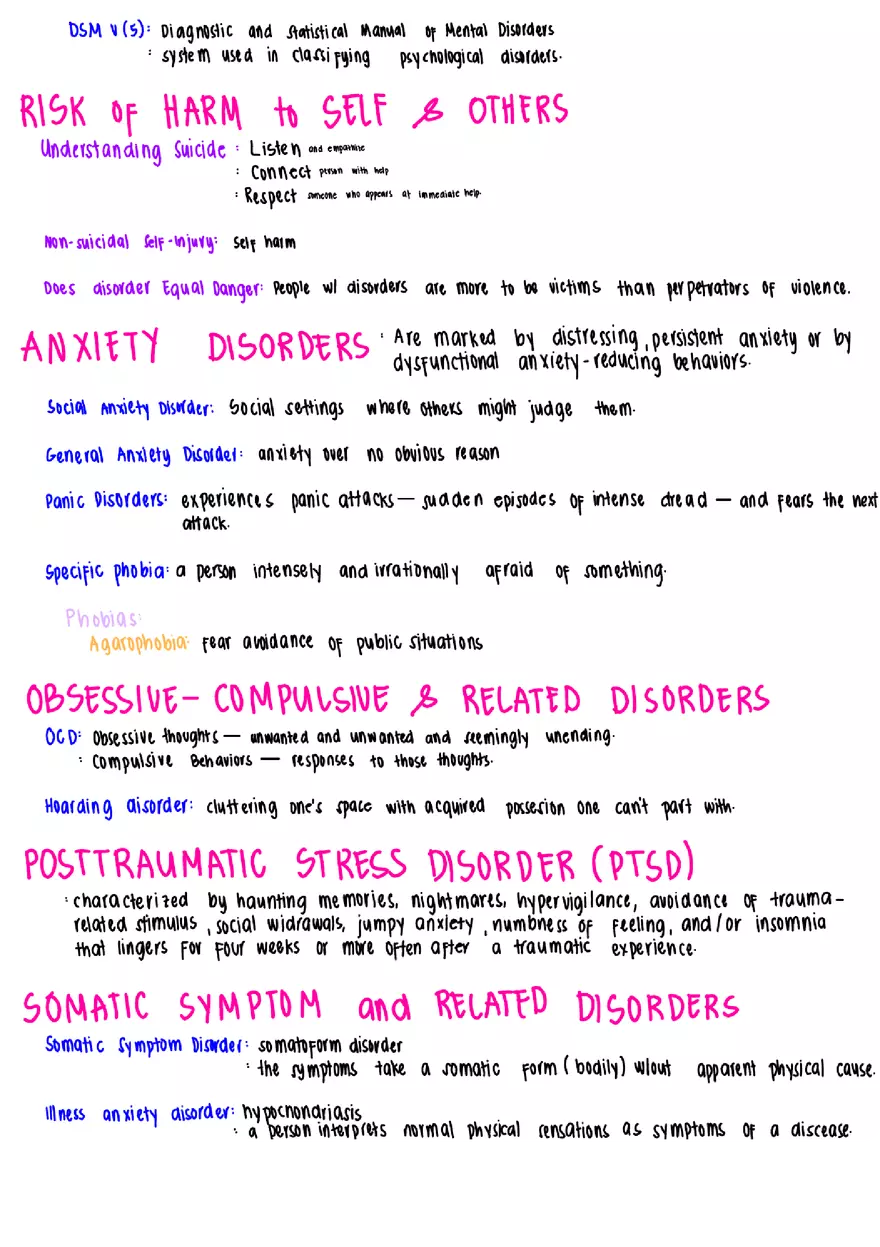 DSM V(5): Diagnostic and Statistical Manual of Mental Disorders
: system used in classifying psychological disorders.
RISK OF HARM to SELF & OTHERS
Understanding Suicide : Listen and empathize
: Connect person with help
: Respect someone who appears at immediate help.
Non-suicidal Self-Injury: Self harm
Does disorder Equal Danger: People w/ disorders are more to be victims than perpetrators of violence.
ANXIETY DISORDERS : Are marked by distressing, persistent anxiety or by
dysfunctional anxiety-reducing behaviors.
Social Anxiety Disorder: Social settings where others might judge them.
General Anxiety Disorder: anxiety over no obvious reason
Panic Disorders: experiences panic attacks — sudden episodes of intense dread — and fears the next
attack.
Specific phobia: a person intensely and irrationally afraid of something.
Phobias:
Agarophobia: fear avoidance of public situations
OBSESSIVE-COMPULSIVE & RELATED DISORDERS
OCD: Obsessive thoughts — unwanted and unwanted and seemingly unending.
: Compulsive Behaviors — responses to those thoughts.
Hoarding disorder: cluttering one's space with acquired possesion one can't part with.
POSTTRAUMATIC STRESS DISORDER (PTSD)
: characterized by haunting memories, nightmares, hypervigilance, avoidance of trauma-
related stimulus, social widrawals, jumpy anxiety, numbness of feeling, and/or insomnia
that lingers for four weeks or more often after a traumatic experience.
SOMATIC SYMPTOM and RELATED DISORDERS
Somatic Symptom Disorder: somatoform disorder
: the symptoms take a somatic form (bodily) w/out apparent physical cause.
Illness anxiety disorder: hypochondriasis
: a person interprets normal physical sensations as symptoms of a discease.